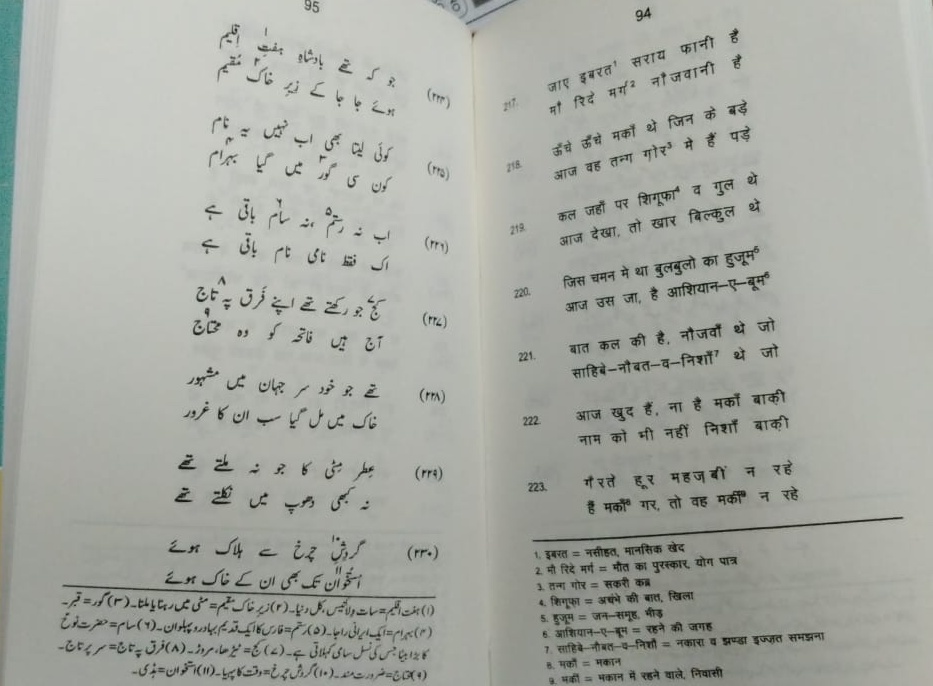 95
جو کہ تھے بادشاہِ ہفت اقلیم۱
ہوئے جا جا کے زیرِ خاک۲ مُقیم
(۲۲۴)
کوئی لیتا بھی اب نہیں یہ نام
کون سی گور۳ میں گیا بہرام۴
(۲۲۵)
اب نہ رستم۵ نہ سام۶ باقی ہے
اک فقط نامی نام باقی ہے
(۲۲۶)
کج۷ جو رکھتے تھے اپنے فَرق پہ تاج۸
آج ہیں فاتحہ کو وہ محتاج۹
(۲۲۷)
تھے جو خود سر جہان میں مشہور
خاک میں مل گیا سب ان کا غرور
(۲۲۸)
عِطر مِٹی کا جو نہ ملتے تھے
نہ کبھی دھوپ میں نکلتے تھے
(۲۲۹)
گردشِ۱۰ چرخ سے ہلاک ہوئے
اُستُخواں۱۱ تک بھی ان کے خاک ہوئے
(۲۳۰)
(۱) ہفت اقلیم=سات ولائتیں،کل دنیا۔ (۲) زیرِ خاک مقیم=مٹی میں رہنا یا ملنا۔ (۳) گور=قبر۔
(۴) بہرام=ایک ایرانی راجا۔ (۵) رستم=فارس کا ایک قدیم بہادر و پہلوان۔ (۶) سام=حضرت نوح
کا بڑا بیٹا جس کی نسل سامی کہلاتی ہے۔ (۷) کج=ٹیڑھا،مروڑ۔ (۸) فرق پہ تاج=سر پر تاج۔
(۹) محتاج=ضرورت مند۔ (۱۰) گردشِ چرخ=وقت کا پہیا۔ (۱۱) استخواں=ہڈی۔
94
217. जाए इबरत¹ सराय फानी है
मौ रिदे मर्ग² नौजवानी है
218. ऊँचे ऊँचे मकाँ थे जिन के बड़े
आज वह तन्ग गोर³ मे हैं पड़े
219. कल जहाँ पर शिगूफा⁴ व गुल थे
आज देखा, तो खार बिल्कुल थे
220. जिस चमन मे था बुलबुलो का हुजूम⁵
आज उस जा, है आशियान–ए–बूम⁶
221. बात कल की है, नौजवाँ थे जो
साहिबे–नौबत–व–निशाँ⁷ थे जो
222. आज खुद हैं, ना है मकाँ बाकी
नाम को भी नहीं निशाँ बाक़ी
223. गैरते हूर महजबीं न रहे
हैं मकाँ⁸ गर, तो वह मकीं⁹ न रहे
1. इबरत = नसीहत, मानसिक खेद
2. मौ रिदे मर्ग = मौत का पुरस्कार, योग पात्र
3. तन्ग गोर = सकरी कब्र
4. शिगूफा = अचंभे की बात, खिला
5. हुजूम = जन–समूह, भीड़
6. आशियान–ए–बूम = रहने की जगह
7. साहिबे–नौबत–व–निशाँ = नकारा व झण्डा इज्जत समझना
8. मकाँ = मकान
9. मकीं = मकान में रहने वाले, निवासी